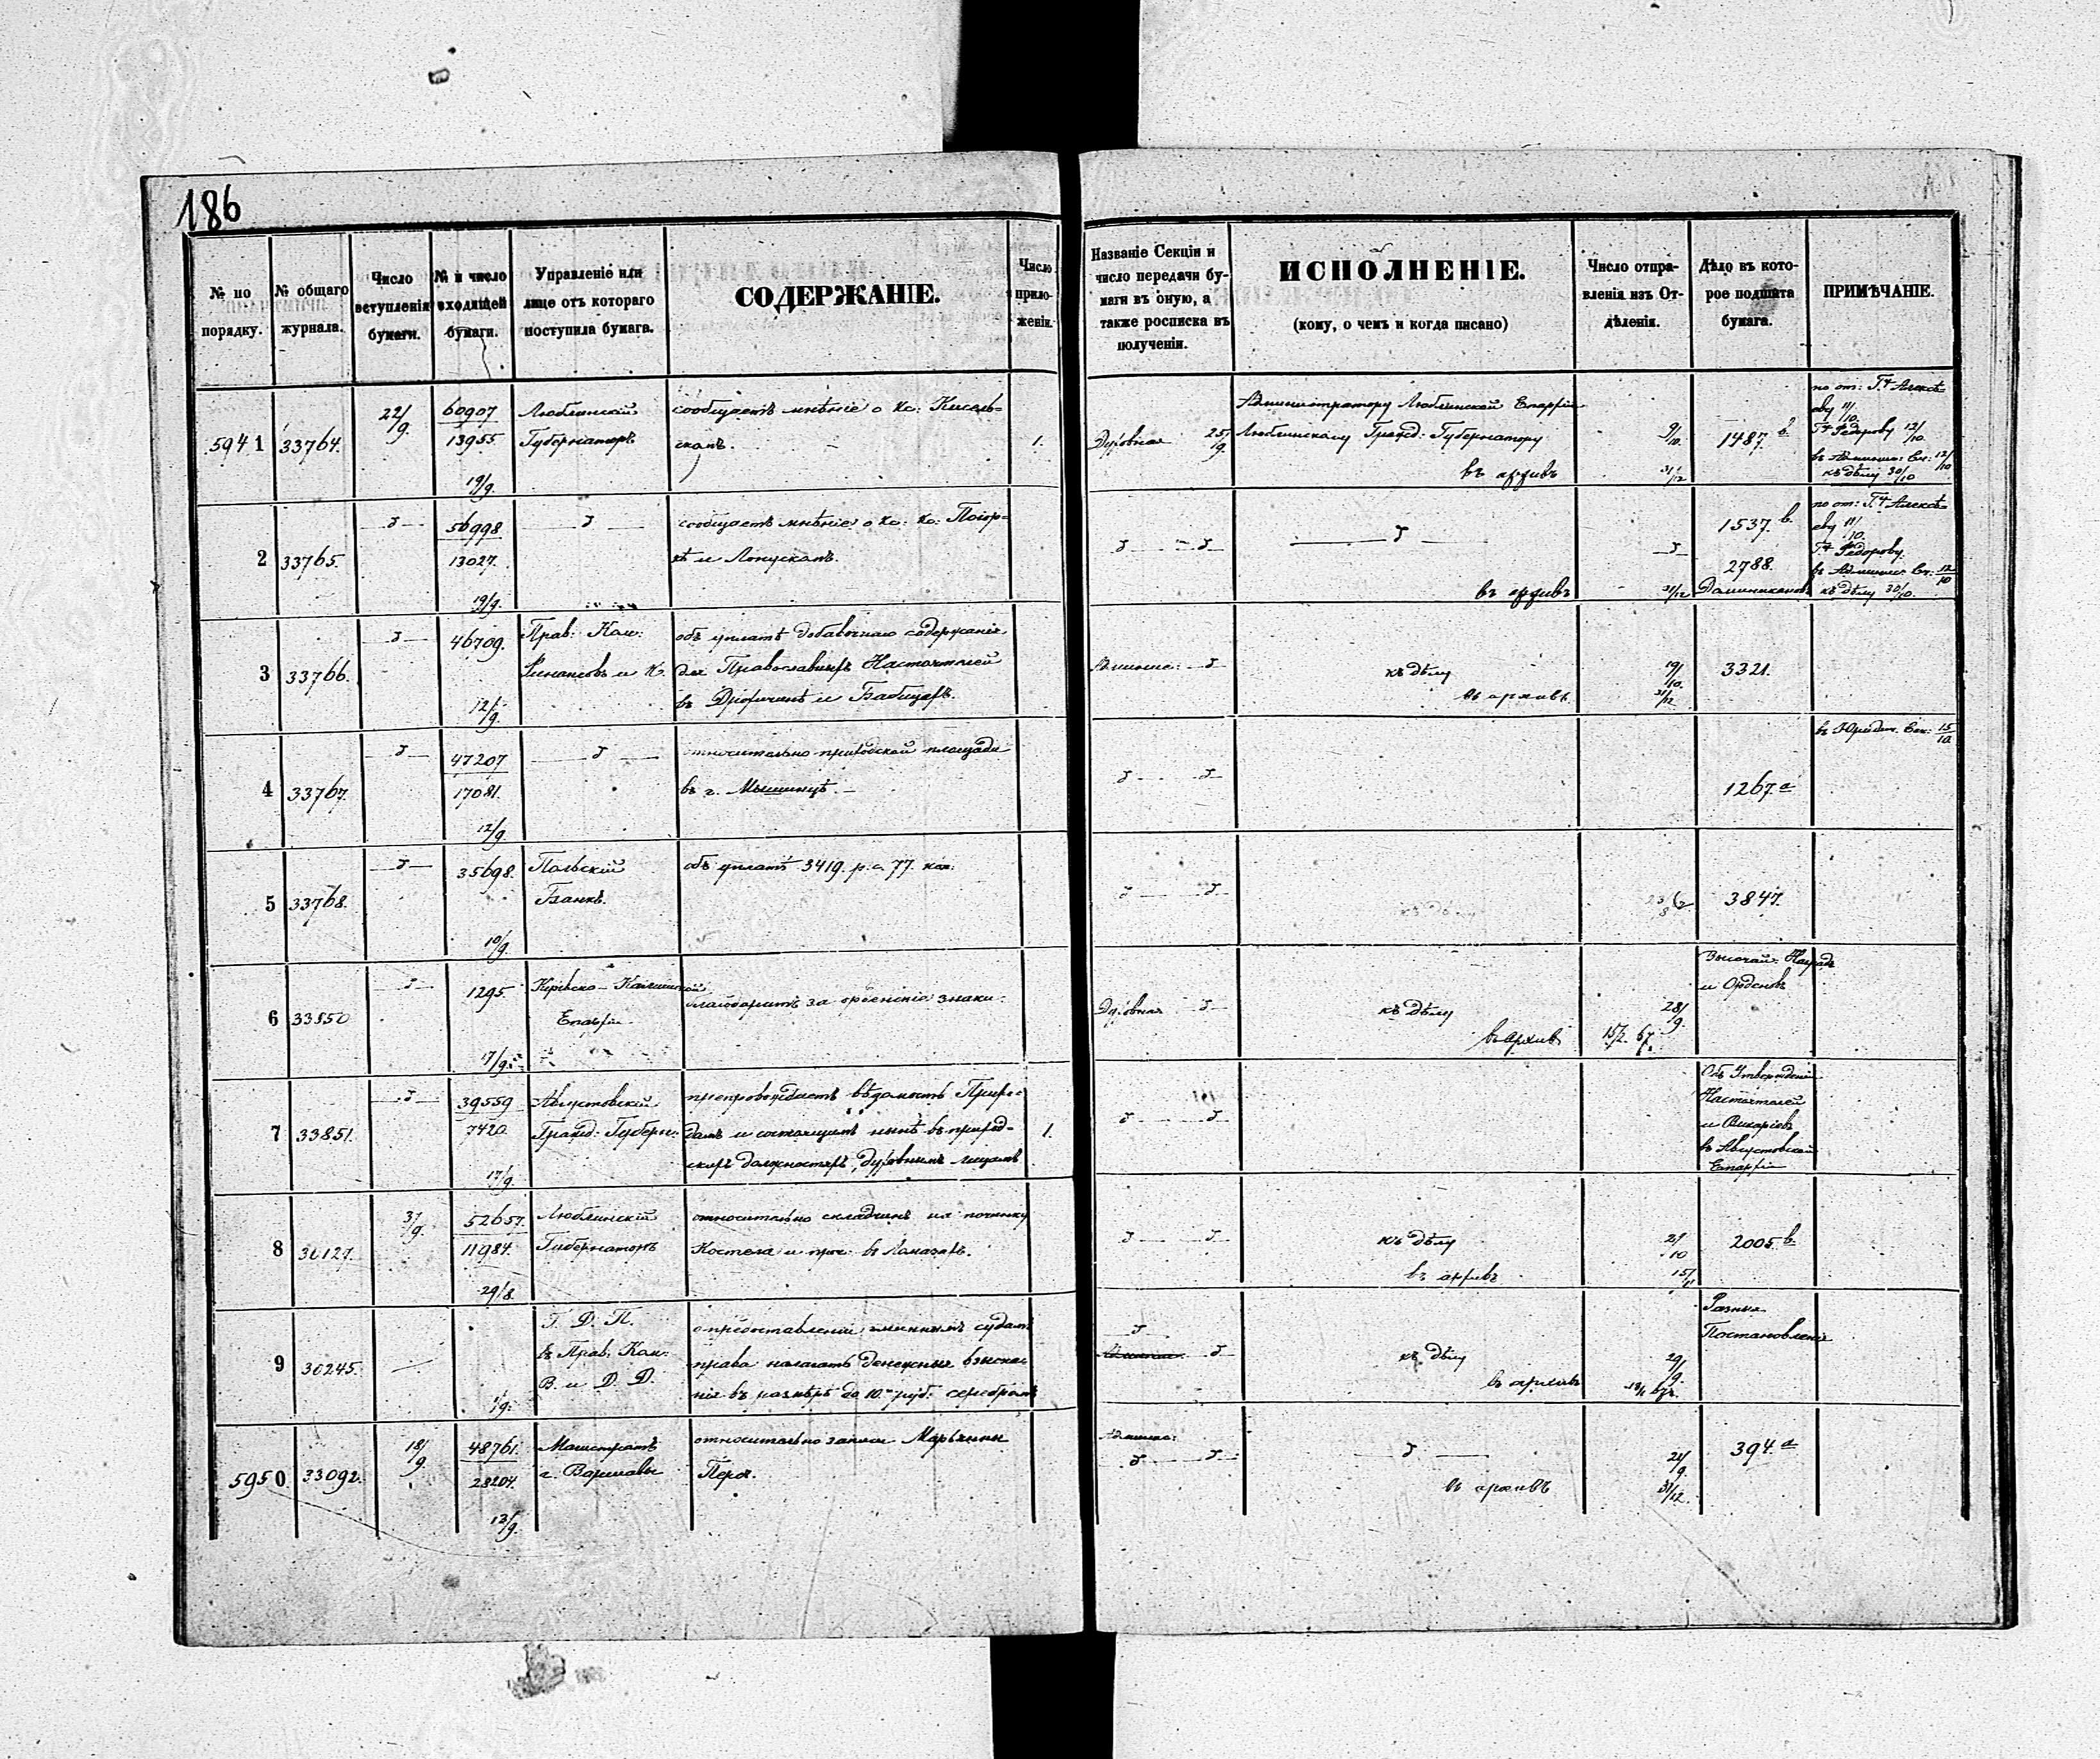 186
№ по порядку.
№ общаго журнала.
Число вступленія бумаги.
№ и число входящей бумаги.
Управленіе или лице отъ котораго поступила бумага.
СОДЕРЖАНІЕ.
Число приложеній.
Названіе Секціи и число передачи бумаги въ оную, а также росписка въ полученіи.
ИСПОЛНЕНІЕ.
(кому, о чемъ и когда писано)
Число отправленія изъ Отдѣленія.
Дѣло въ которое подшита бумага.
ПРИМѢЧАНІЕ.
5941 33764. 22/9. 60907 13955 19/9.
Люблинскій
Губернаторъ
сообщаетъ мнѣніе о Кс: Кисель=
скомъ.
1.
Духовная 25/9.
Администратору Люблинской Епархіи
Люблинскому Гражд: Губернатору
въ архивъ
9/10. 31/12
1487. в
по от:
11/10.
Федорову 12/10
12/10
къ дѣлу 30/10
2 33765. 56998 13027. 19/9.
сообщаетъ мнѣніе о Кс: Кс:
и
въ архивъ
31/12
1537. в.
2788.
по от:
11/10.
Федорову.
12/10
къ дѣлу 30/10.
3 33766. 46709. 12/9.
Прав: Ком:
Финансовъ и К.
объ уплатѣ добавочнаго содержанія
для Православныхъ Настоятелей
въ Дрохичинѣ и Бабицахъ.
къ дѣлу
въ архивъ
19/10. 31/12.
3321.
4 33767. 47207 17081. 12/9.
относительно приходской площади
въ г. Мышинцѣ.
1267. а
въ Юридич. Сек: 15/10
5 33768. 35698. 10/9.
Польскій
Банкъ.
объ уплатѣ 3419. р. с. 77. коп:
3847.
6 33850 1295. 17/9.
Епархія
благодаритъ за орденскіе знаки.
Духовная
къ дѣлу
въ Архивъ
28/9.
Высочай: Наградъ
и Орденовъ
7 33851. 39559 7420. 17/9.
Августовскій
Гражд: Губерн:
препровождаетъ вѣдомость Прихо=
дамъ и состоящимъ нынѣ въ приход=
скихъ должностяхъ, духовнымъ лицамъ
1.
Объ Утвержденіи
Настоятелей
и Викаріевъ
въ Августовской
Епархіи
8 30127. 52657. 11984. 29/8.
Люблинскій
Губернаторъ
относительно складчинъ на починку
Костела и проч. въ Ломазахъ.
къ дѣлу
въ архивъ
2005. в.
9 30245. 1/9.
Г. Д. П.
въ Прав. Ком:
В. и Д. Д.
о предоставленіи гминнымъ судамъ
права налагать денежныя взыска=
нія въ размѣрѣ до 10. руб. серебромъ
къ дѣлу
въ архивъ
29/9.
Разныя
Постановленія
5950 33092. 18/9. 48761. 28204. 13/9.
Магистратъ
г. Варшавы
относительно записи Марьянны
въ архивъ
31/12.
394. а